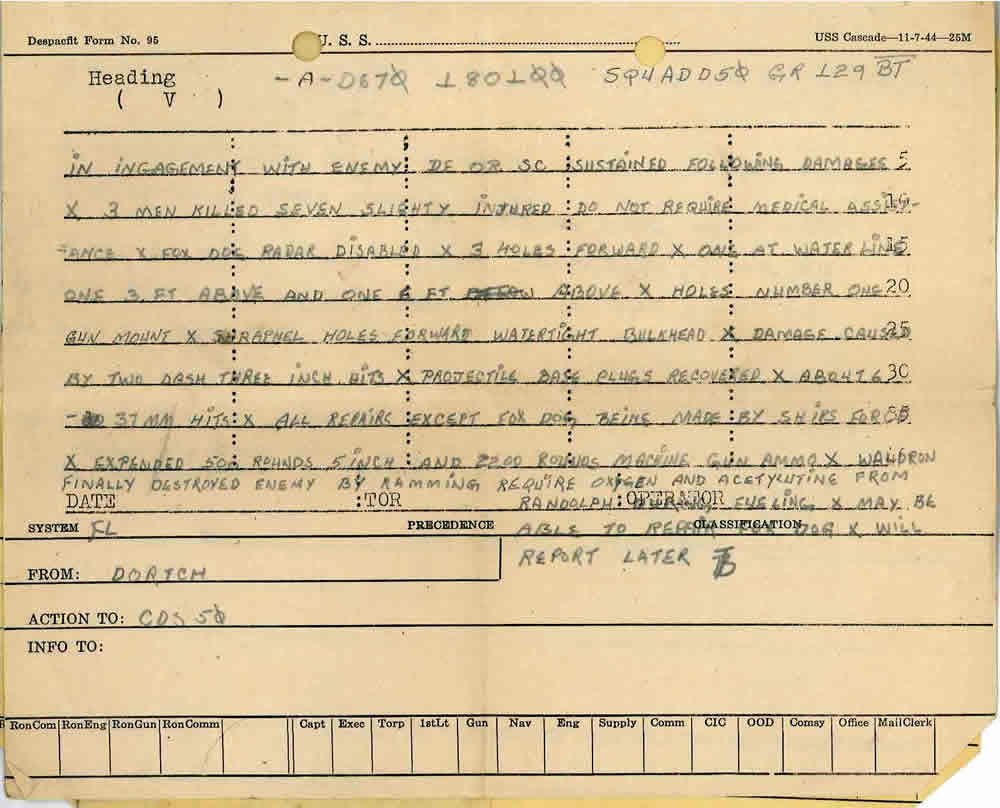 Despacfit Form No. 95 U. S. S. USS Cascade—11-7-44—25M
Heading -A-D67Ø 180100 SQUADD5Ø GR 129 BT
( V )
IN INGAGEMENT WITH ENEMY DE OR SC SUSTAINED FOLLOWING DAMAGES 5
X 3 MEN KILLED SEVEN SLIGHTY INJURED DO NOT REQUIRE MEDICAL ASSIS- 10
TANCE X FOX DOG RADAR DISABLED X 3 HOLES FORWARD X ONE AT WATER LINE 15
ONE 3 FT ABOVE AND ONE 6 FT ABOVE X HOLES NUMBER ONE 20
GUN MOUNT X SHRAPNEL HOLES FORWARD WATERTIGHT BULKHEAD X DAMAGE CAUSED 25
BY TWO DASH THREE INCH HITS X PROJECTILE BASE PLUGS RECOVERED X ABOUT 6 30
37 MM HITS X ALL REPAIRS EXCEPT FOX DOG BEING MADE BY SHIPS FORCE 35
X EXPENDED 500 ROUNDS 5 INCH AND 2200 ROUNDS MACHINE GUN AMMO X WALDRON
FINALLY DESTROYED ENEMY BY RAMMING REQUIRE OXYGEN AND FROM
DATE :TOR :OPERATOR
RANDOLPH DURING X MAY BE
SYSTEM FL PRECEDENCE CLASSIFICATION
ABLE TO REPAIR FOX DOG X WILL
REPORT LATER
FROM: DORTCH
ACTION TO: CDS 5Ø
INFO TO:
RonCom RonEng RonGun RonComm Capt Exec Torp 1stLt Gun Nav Eng Supply Comm CIC OOD Comsy Office MailClerk